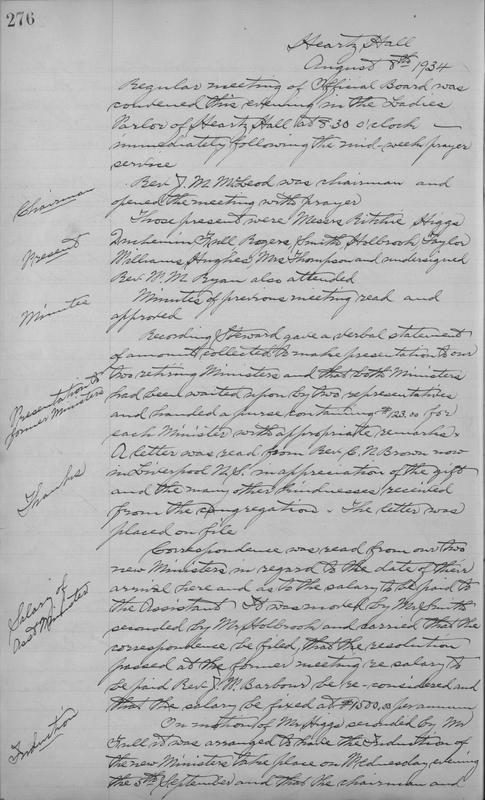 276
Heartz Hall
August 8th 1934
Regular meeting of Official Board was
convened this evening in the Ladies
Parlor of Heartz Hall at 8.30 o'clock —
immediately following the mid-week prayer
service
Chairman
Rev J. M. McLeod was chairman and
opened the meeting with prayer
Present
Those present were Messrs Ritchie Higgs
Duchemin Full Rogers, Smith Holbrook, Taylor
Williams, Hughes, Mrs Thompson and undersigned
Rev. W. M. Ryan also attended
Minutes
Minutes of previous meeting read and
approved
Presentation to
former Ministers
Recording Steward gave a verbal statement
of amount collected to make presentation to our
two retiring Ministers and that both Ministers
had been waited upon by two representatives
and handed a purse containing $123.00 for
each Minister with appropriate remarks.
Thanks
A letter was read from Rev. C. N. Brown now
in Liverpool N.S. in appreciation of the gift
and the many other kindnesses received
from the congregation. The letter was
placed on file
Salary of
Asst Minister
Correspondence was read from our two
new Ministers in regard to the date of their
arrival here and as to the salary to be paid to
the Assistant It was moved by Mr Smith
seconded by Mr Holbrook and carried that the
correspondence be filed, that the resolution
passed at the former meeting re salary to
be paid Rev. J. M. Barbour be re-considered and
that the salary be fixed at $1500.00 per annum
Induction
On motion of Mr Higgs seconded by Mr
Full it was arranged to have the Induction of
the new Ministers take place on Wednesday evening
the 5th September and that the chairman and